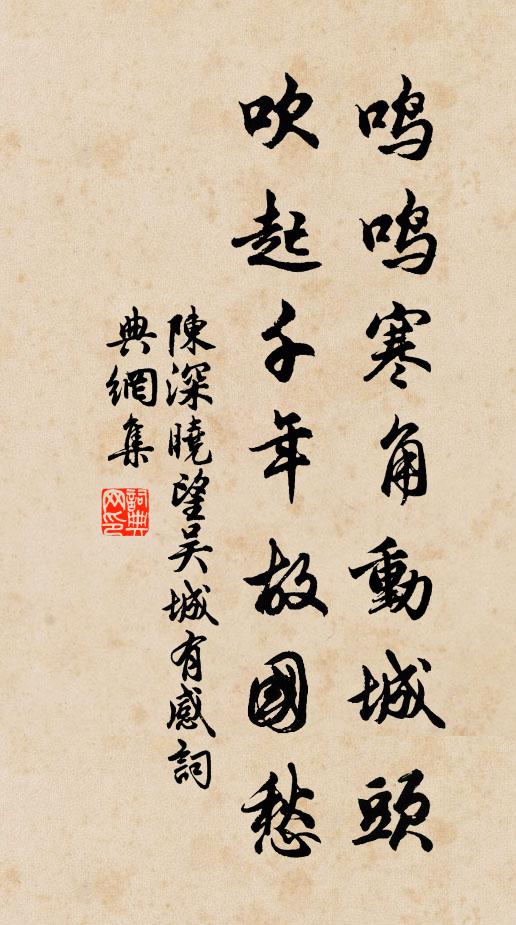 鸣鸣寒角動城頭
吹起千年故國愁
陳深曉望吳城有感詞
典網集
詞典
网印